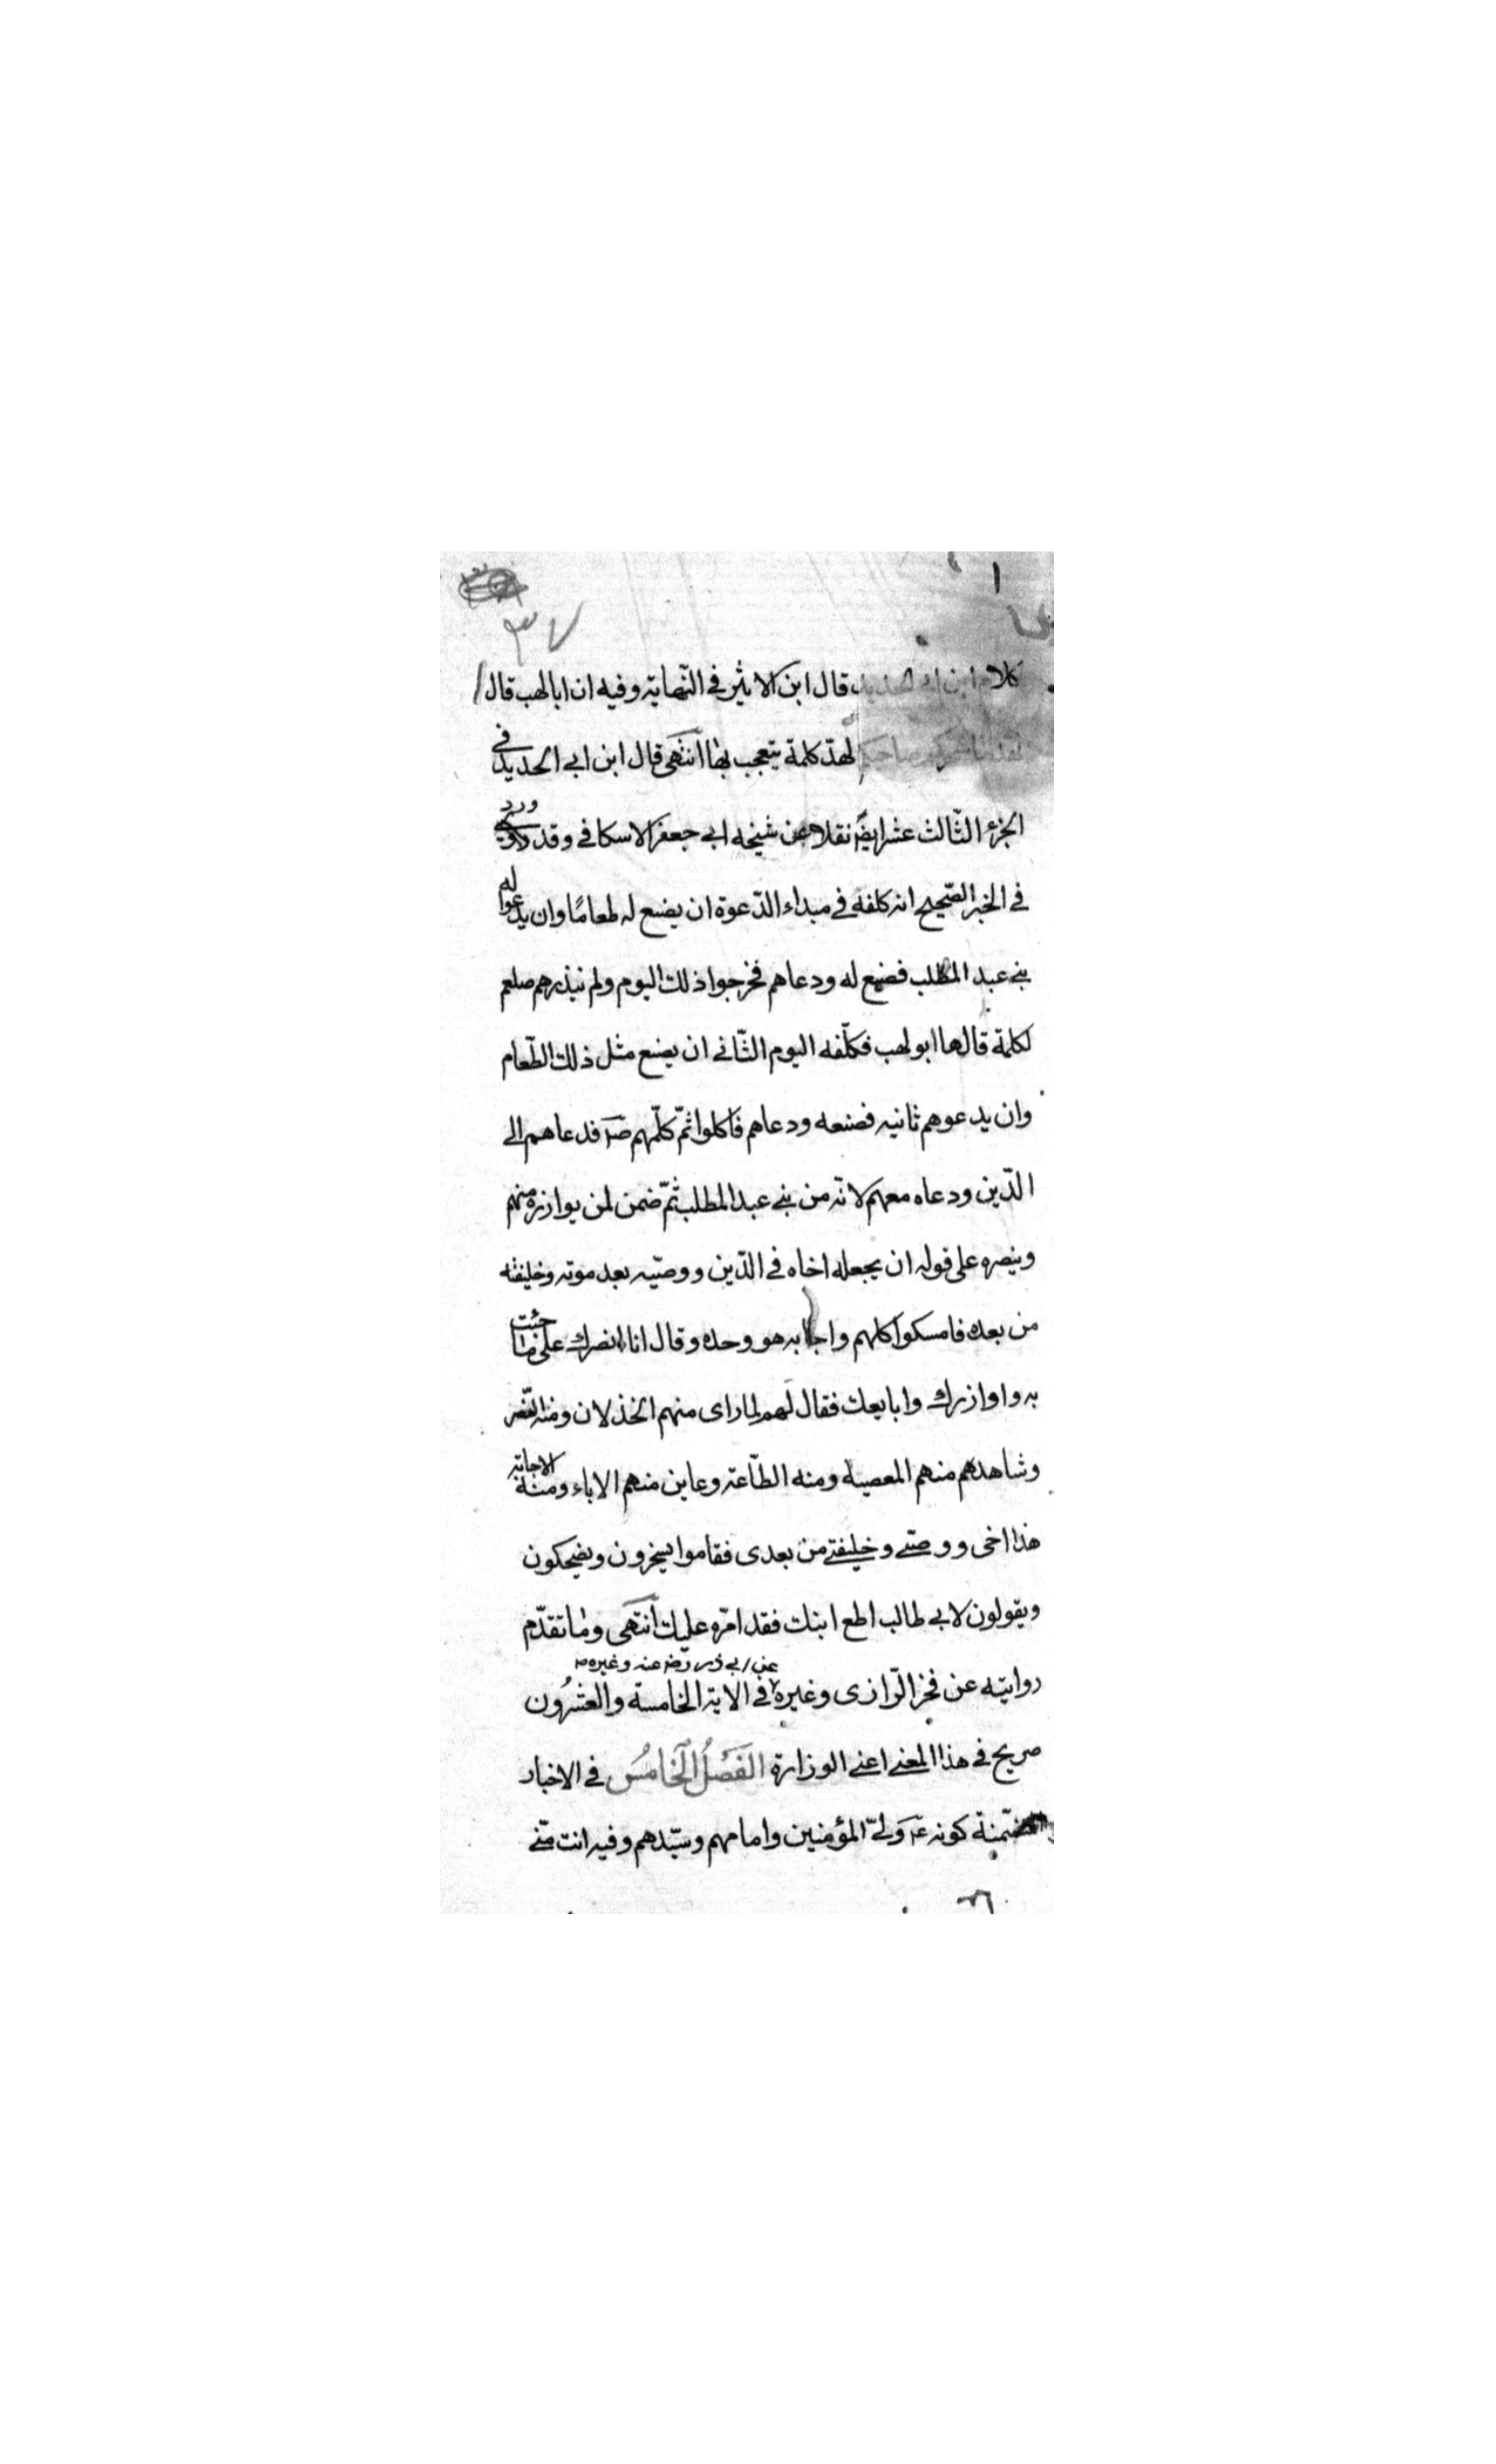 ٣٧
كلام ابن ابي الحديد قال ابن الاثير في النّهاية وفيه ان ابا لهب قال
لهدّ كلمة يتعجب بها انتهى قال ابن ابي الحديد في
الجزء الثّالث عشر ايضًا نقلا عن شيخه ابي جعفر الاسكافي وقد ورد
في الخبر الصّحيح انه كلفه في مبداء الدّعوة ان يضع له طعامًا وان يدعوا له
بني عبد المطلب فضع له ودعاهم فخرجوا ذلك اليوم ولم ينذرهم صلعم
لكلمة قالها ابو لهب فكلّفه اليوم الثّاني ان يضع مثل ذلك الطّعام
وان يدعوهم ثانيه فصنعه ودعاهم فاكلوا ثمّ كلّمهم صه فدعاهم الى
الدّين ودعاه معهم لانّه من بني عبد المطلب ثمّ ضمن لمن يوازره منهم
وينصره على قوله ان يجعله اخاه في الدّين ووصيّه بعد موته وخليفته
من بعده فامسكوا كلهم واجابه هو وحده وقال انا انصرك على ما جئت
به واوازرك وابايعك فقال لهم لما راى منهم الخذلان ومنه النّصر
وشاهدهم منهم المعصية ومنه الطّاعة وعاين منهم الاباء ومنه الاجابة
هذا اخى ووصيّي وخليفتي من بعدى فقاموا يسخرون ويضحكون
ويقولون لابي طالب اطع ابنك فقد امّره عليك انتهى وما تقدّم
عن ابي ذر رضه عنه وغيره
روايته عن فخر الرّازى وغيره في الاية الخامسة والعشرون
صريح في هذا المعنى اعنى الوزارة الفَصْلُ الخَامسُ في الاخبار
كونه ع وليّ المؤمنين وامامهم وسيّدهم وفيه انت منّي